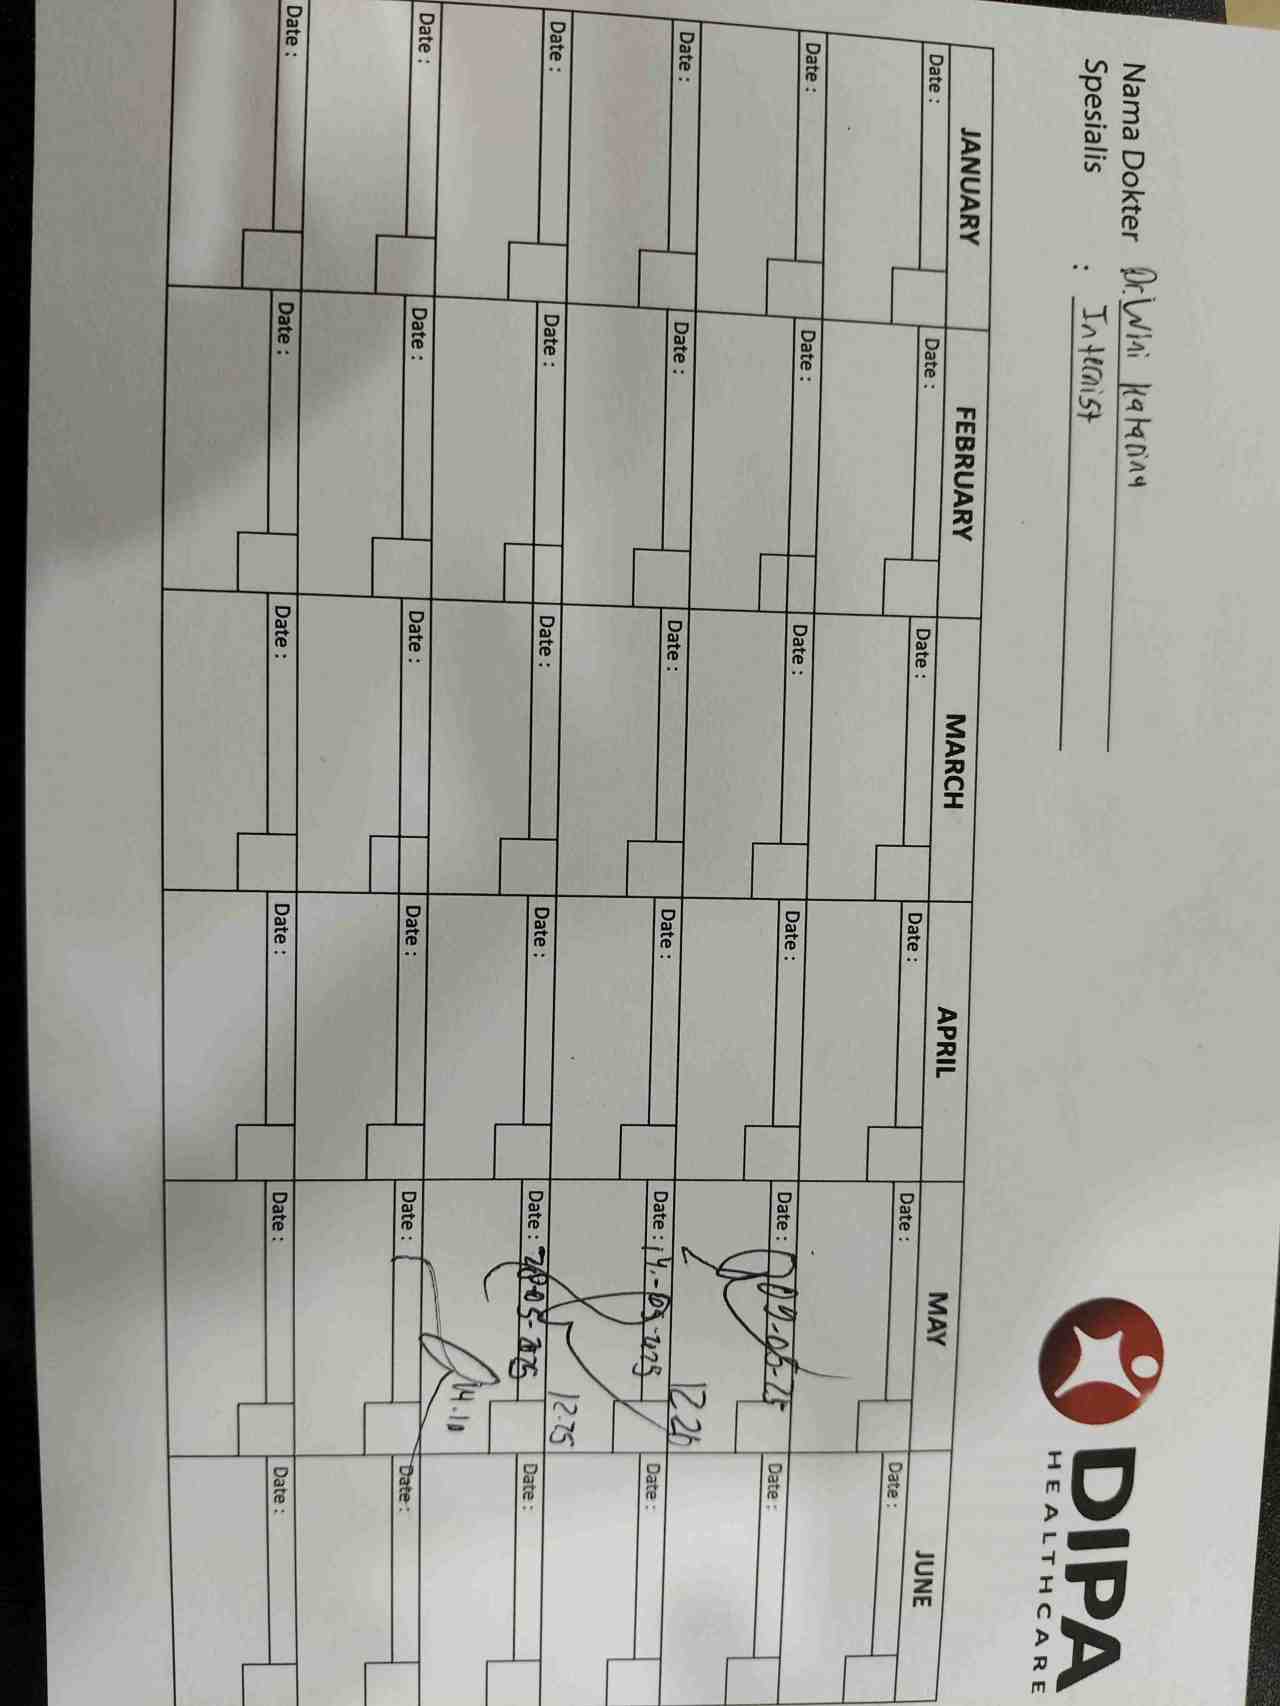 DIPA
HEALTHCARE
Nama Dokter Dr. Wini Katarina
Spesialis : Internist
JANUARY FEBRUARY MARCH APRIL MAY JUNE
Date : Date : Date : Date : Date : Date :
Date : Date : Date : Date : Date : 07-05-25 Date :
12.26
Date : Date : Date : Date : Date : 14.-05-2025 Date :
12.25
Date : Date : Date : Date : Date : 20-05-2025 Date :
14.10
Date : Date : Date : Date : Date : Date :
Date : Date : Date : Date : Date : Date :